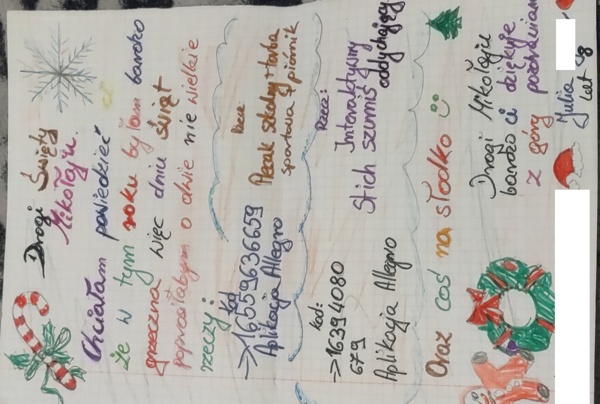 Drogi Święty
Mikołaju.
Chciałam powiedzieć ci
że w tym roku byłam bardzo
grzeczna więc dniu świąt
poprosiłabym o dwie nie wielkie
rzeczy:
kod
→16559636659
Aplikacja Allegro
Rzecz:
Plecak szkolny + torba
sportowa + piórnik
kod:
→16394080
679
Aplikacja Allegro
Rzecz:
Interaktywny
Stich szumiś
oddychający
Oraz coś na słodko
Drogi Mikołaju
bardzo ci dziękuje
z góry pozdrawiam
Julia
lat 8